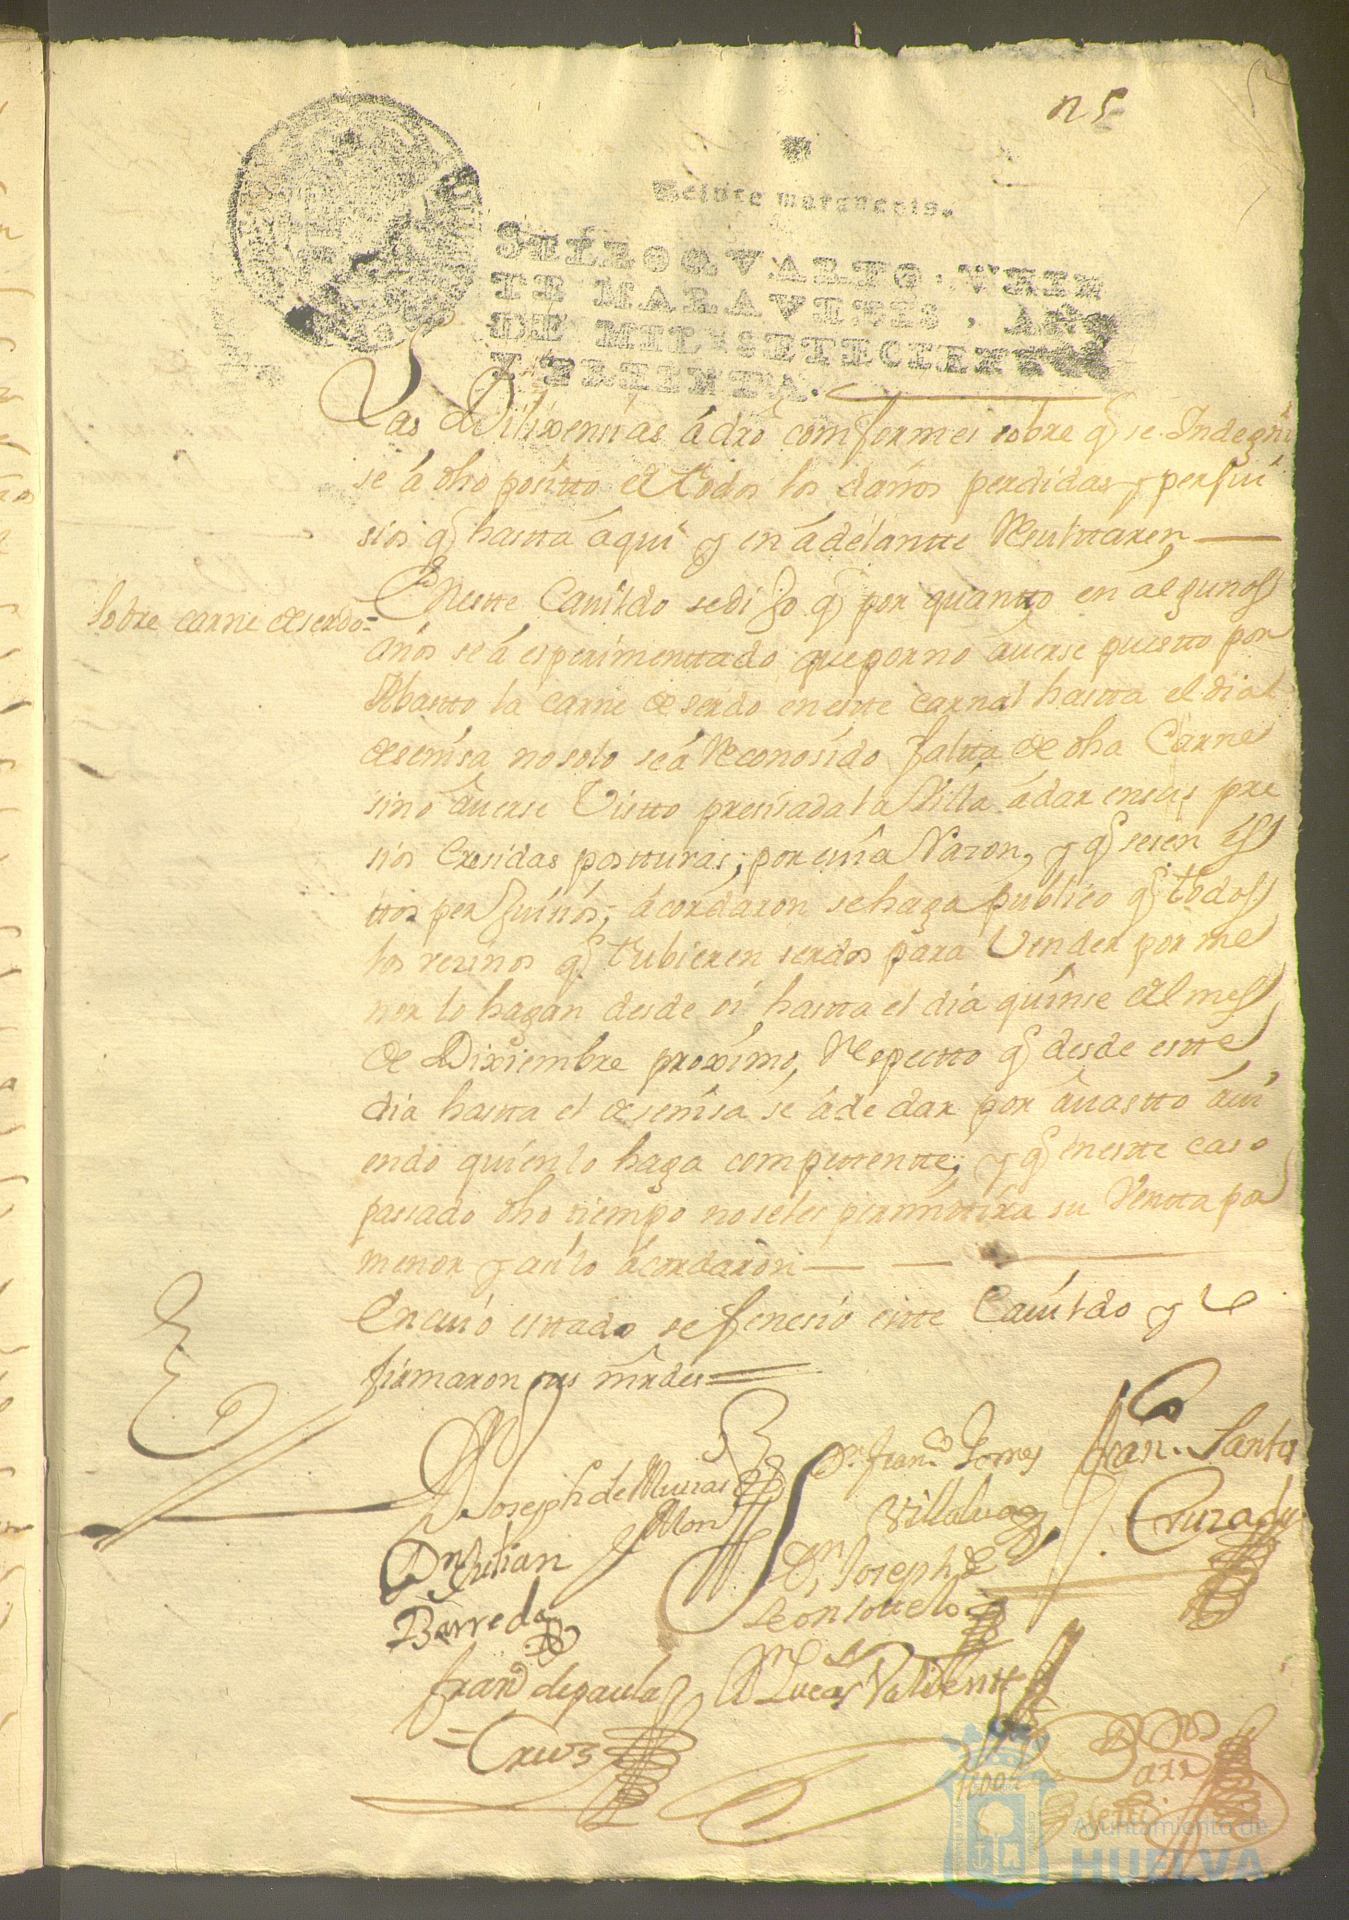 Veinte maravedis.
SELLO QVARTO, VEIN
TE MARAVEDIS, AÑO
DE MIL SETECIENTOS
Y TREINTA.
Las Dilixensias á dro comformes sobre q̃ se Indegni
se á dho positto de todos los daños perdidas y perjui
sios q̃ hasta áqui y en ádelantte Resulttaren
Sobre carne de serdo=
Enestte Cavildo se dijo q̃ por quantto en algunos
años se á esperimenttado que por no áverse puestto por
Abastto la carne de serdo en estte carnal hasta el dia
de senisa no solo se á Reconosido faltta de dha Carne
sino áverse Vistto presisada la Villa á dar en sus pre
sios Cresidas postturas; por cuia Razon, y q̃ sesen es
ttos perjuisios; ácordaron se haga publico q̃ todos
los vezinos q̃ tubieren serdos para Vender por me
nor lo hagan desde oi hasta el dia quinse del mes
de Diziembre proximo, Respectto q̃ desde estte
dia hasta el de senisa se á de dar por ávastto ávi
endo quien lo haga competentte; y q̃ en estte caso
passado dho tiempo no se les permittira su Ventta por
menor y asi lo ácordaron
En cuio esttado se fenesio estte Cavildo y
firmaron sus mrdes=
Joseph de
Dn Fran.co Torres
Villalva
Fran. Santos
Cruzado
Dn Julian
Barreda
Dn Joseph de
Leon sottelo
fran.co de paula
Cruz
Dn Lucas Valiente
Ayuntamiento de
HUELVA